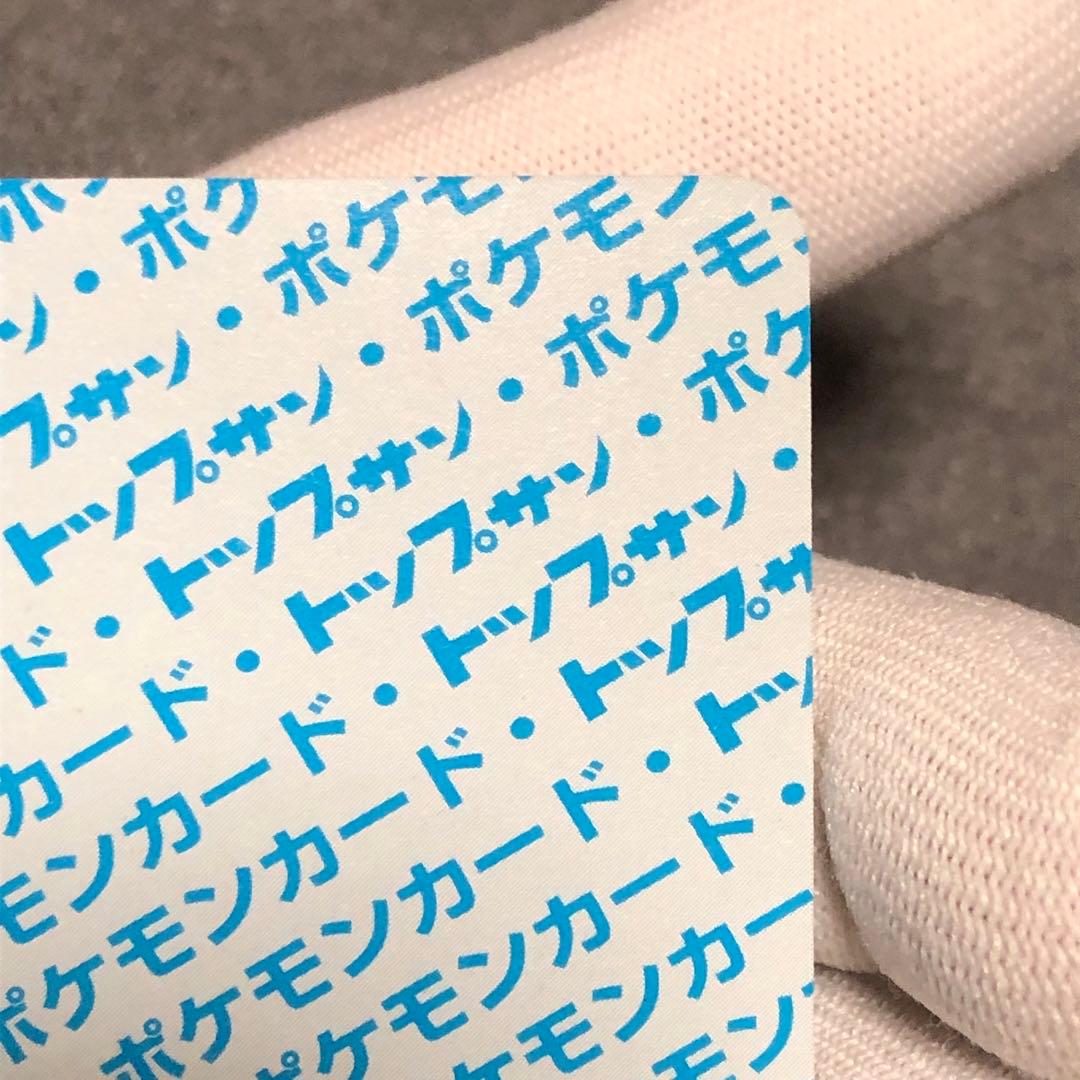 ポ
ン・ポケ
プサン・ポケモ
トップサン・ポケモン
ド・トップサン・ポケモン
カード・トップサン・ポケ
モンカード・トップサン・
ポケモンカード・トップサ
ポケモンカード・トッ
ポケモンカード・
ケモンカー
モン